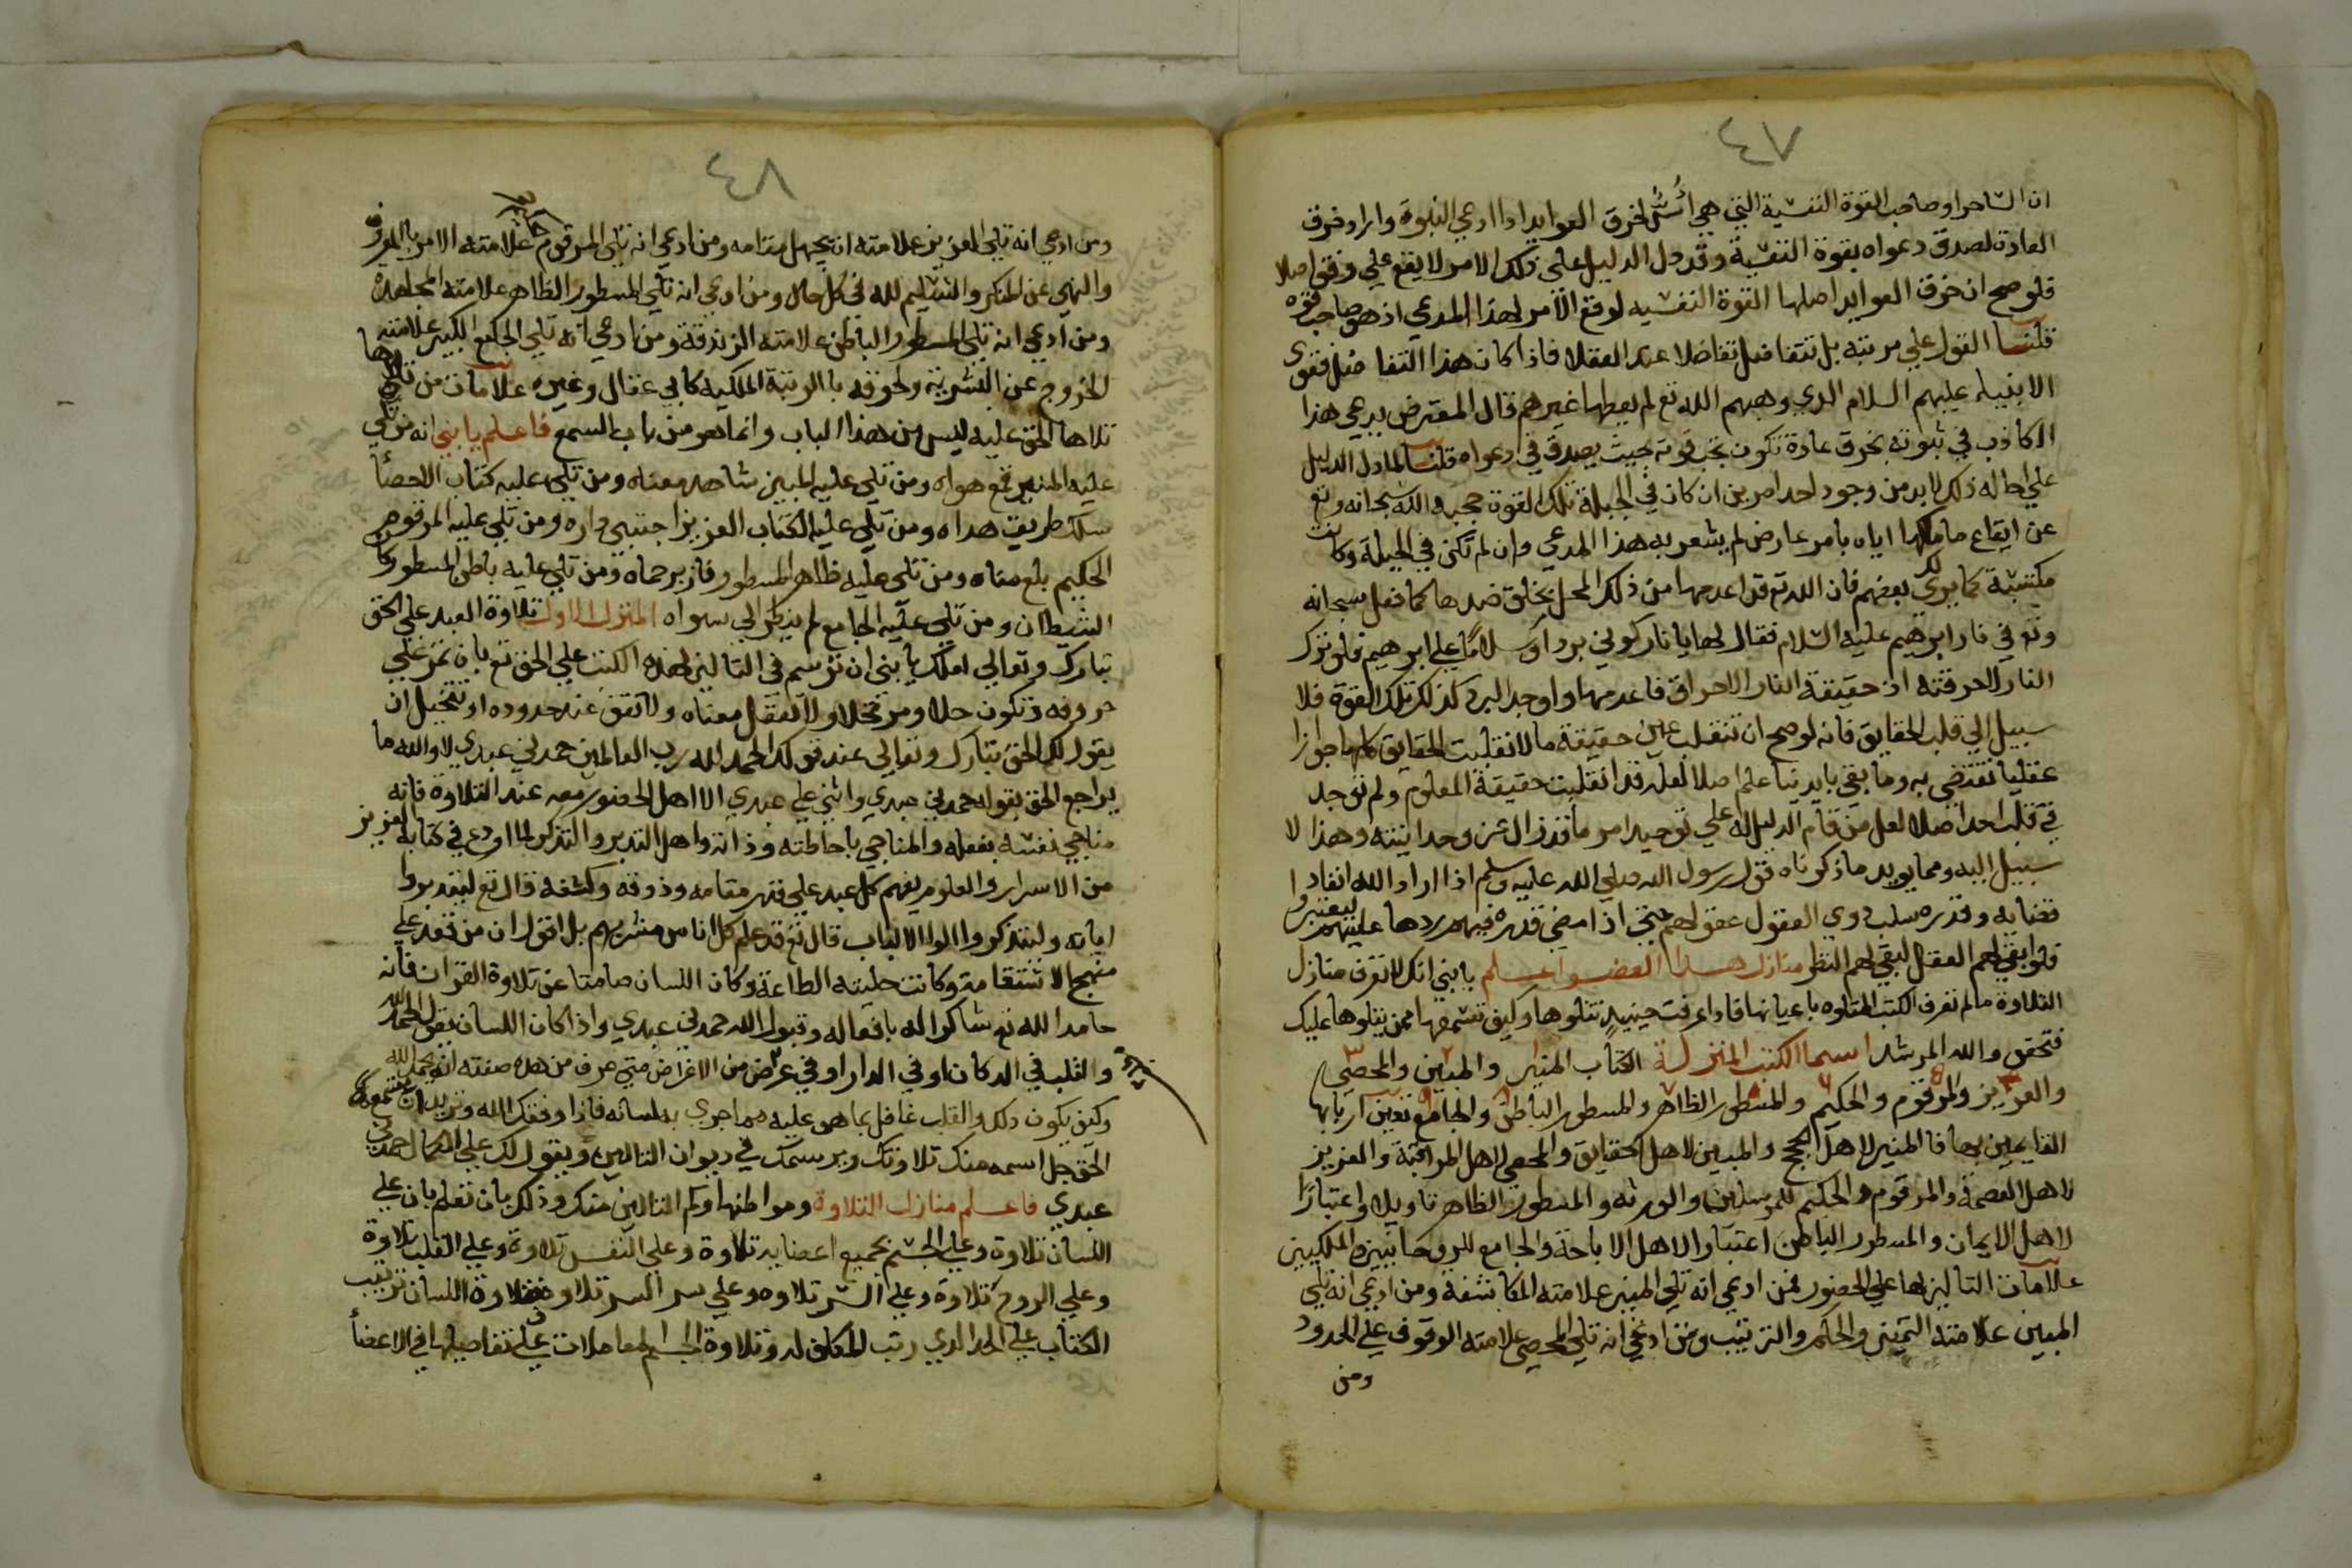 ٤٧
ان الساحر او صاحب القوة النفسية التي هي اسٌ لخرق العوايد اذا ادعي النبوة واراد خرق
العادة لصدق دعواه بقوة النفسية وقد دل الدليل علي ذلك الامر لا يقع علي وفق اصلا
فلو صح ان خرق العوايد اصلها القوة النفسيه لوقع الامر لهذا المدعي اذ هو صاحب قوه
قلنا القول علي مرتبته بل تتفاضل تفاضلا عند العقلا فاذا كان هذا التفاضل فقوي
الانبياء عليهم السلام الذي وهبهم الله تع لم يعطها غيرهم قال المعترض يدعي هذا
الكاذب في ثبوته بخرق عادة تكون تحت قوته بحيث يصدق في دعواه قلنا لما دل الدليل
علي احاله ذلك لا بد من وجود احد امرين ان كان في الجبلة تلك القوة حجبه الله سبحانه وتع
عن ايقاع ما ملكها اياه بامر عارض لم يشعر به هذا المدعي وان لم تكن في الجبلة وكانت
مكتسبة كما يري ذلك بعضهم فان الله تع قد اعدمها من ذلك المحل بخلق ضدها كما فعل سبحانه
وتع في نار ابرهيم عليه السلام فقال لها يا نار كوني بردا وسلاما علي ابرهيم فلو ترك
النار لاحرقته اذ حقيقة النار الاحراق فاعدمها واوجد البرد كذلك تلك القوة فلا
سبيل الي قلب الحقايق فانه لو صح ان تنقلب عين حقيقة ما لانقلبت الحقايق كلها جوازا
عقليا نقتضي به وما بقي بايدينا علم اصلا لعله قد انقلبت حقيقة المعلوم ولم توجد
في قلب احد اصلا لعل من قام الدليل له علي توحيد امر ما قد زال عن وحدانيته وهذا لا
سبيل اليه ومما يويد ما ذكرناه قول رسول الله صلي الله عليه وسلم اذا اراد الله انفاد
قضايه وقدره سلب ذوي العقول عقولهم حتي اذا امضي قدره فيهم ردها عليهم ليعتبروا
فلو ابقي لهم العقل لبقي لهم النظر منازل هذا العضو اعلم يا بني انك لا تعرف منازل
التلاوة ما لم تعرف الكتب المتلوه باعيانها فاذا عرفت حينيذ تتلوها وكيف تسمعها ممن يتلوها عليك
فتحقق والله المرشد اسما الكتب المنزلة الكتاب المنير والمبين والمحصي
والعزيز والمرقوم والحكيم والمسطور الظاهر والمسطور الباطن والجامع تعين اربابها
القايمين بها فالمنير لاهل الحجج والمبين لاهل الحقايق والمحصي لاهل المراقبة والعزيز
لاهل العصمة والمرقوم والحكيم للمرسلين والورثه والمسطور الظاهر تاويلا واعتبارا
لاهل الايمان والمسطور الباطن اعتبارا لاهل الاباحة والجامع للروحانيين الملكيين
علامات التالين لها علي الحضور فمن ادعي انه تلي المنير علامته المكاشفة ومن ادعي انه تلي
المبين علامته التميز والحكم والترتيب ومن ادعي انه تلي المحصي علامته الوقوف علي الحدود
ومن
٤٨
ومن ادعي انه تلي العزيز علامته ان يجهل مقامه ومن ادعي انه تلي المرقوم علامته الامر بالمعروف
والنهي عن المنكر والتسليم لله في كل حال ومن ادعي انه تلي المسطور الظاهر علامته المجاهدة
ومن ادعي انه تلي المسطور الباطن علامته الزندقة ومن ادعي انه تلي الجامع الكبير علامته
الخروج عن البشرية ولحوقه بالرتبة الملكيه كابي عقال وغيره علامات من
تلاها الحق عليه ليس من هذا الباب وانما هو من باب السمع فاعلم يا بني انه من تلي
عليه المنير قمع هواه ومن تلي عليه المبين شاهد معناه ومن تلي عليه كتاب الاحصا
سلك طريق هداه ومن تلي عليه الكتاب العزيز اجتبي داره ومن تلي عليه المرقوم
الحكيم بلغ مناه ومن تلي عليه ظاهر المسطور فاز برحماه ومن تلي عليه باطن المسطور
الشيطان ومن تلي عليه الجامع لم ينظر الي سواه المنزل الاول تلاوة العبد علي الحق
تبارك وتعالي املك يا بني ان ترسم في التالين لهذه الكتب علي الحق تع بان تمر علي
حروفه وتكون حلا ومرتحلا ولا تعقل معناه ولا تقف عند حدوده او تتخيل ان
يقول لك الحق تبارك وتعالي عند قولك الحمد لله رب العالمين حمدني عبدي لا والله ما
يراجع الحق بقوله حمدني عبدي واثني علي عبدي الا اهل الحضور معه عند التلاوة فانه
مناجي نفسه بفعله والمناجي باحاطته وذاته واهل التدبر والتذكر لما اودع في كتابه العزيز
من الاسرار والعلوم يفهم كل عبد علي قدر مقامه وذوقه وكشفه قال تع ليدبروا
اياته وليتذكر اولوا الالباب قال تع قد علم كل اناس مشربهم بل اقول ان من قعد علي
منهج الاستقامة وكانت حليته الطاعة وكان اللسان صامتا عن تلاوة القران فانه
حامدا لله تع شاكرا له بافعاله وقبول الله حمدني عبدي واذا كان اللسان يقول الحمد لله
والقلب في الدكان او في الدار او في عرض من الاغراض متي عرف من هذه صفته انه يحمد الله
وكيف يكون ذلك والقلب غافل بما هو عليه مما جري به لسانه فاذا وفقك الله وتريد ان تسمع
الحق جل اسمه منك تلاوتك ويرسمك في ديوان التالين ويقول لك علي الكمال حمدني
عبدي فاعلم منازل التلاوة ومواطنها وكم التالين منك وذلك بان تعلم بان علي
اللسان تلاوة وعلي الجسم بجميع اعضايه تلاوة وعلي النفس تلاوة وعلي القلب تلاوة
وعلي الروح تلاوة وعلي السر تلاوه وعلي سر السر تلاوة فتلاوة اللسان ترتيب
الكتاب علي الحد الذي رتب المكلف له وتلاوة الجسم المعاملات علي تفاصيلها في الاعضا